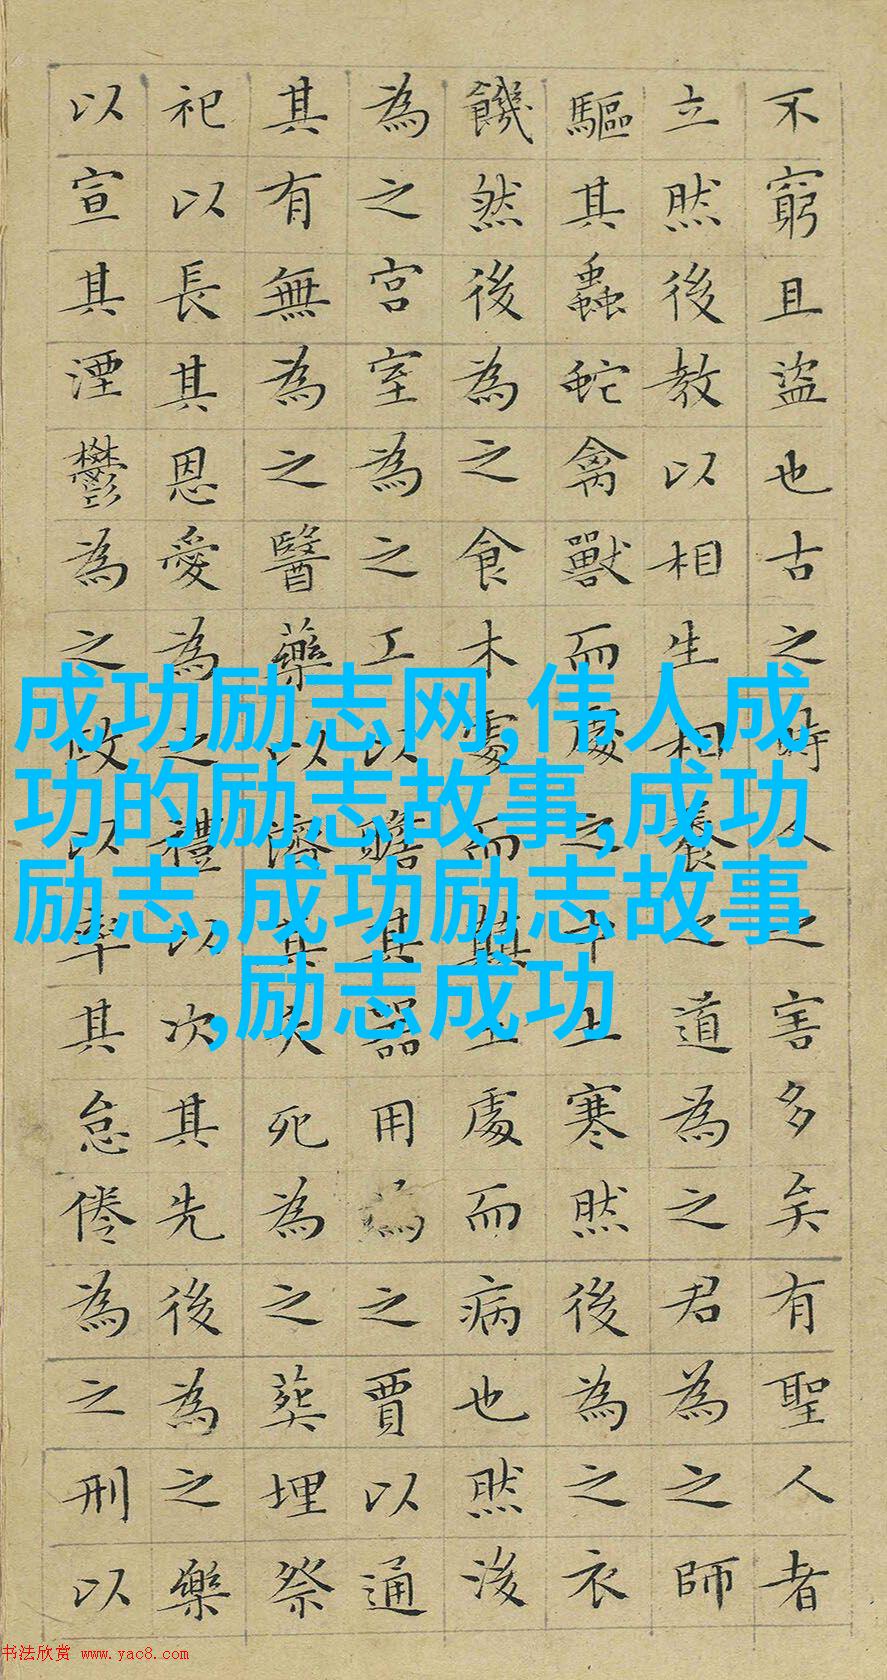 不窮且盜也古之時人之害多矣有聖人者
立然後教以相生相養之道為之君為之師
驅其蟲蛇禽獸而處之中土寒然後為之衣
饑然後為之食木處而顛土處而病也然後
為之宮室為之工以贍其器用為之賈以通
其有無為之醫藥以濟其夭死為之葬埋祭
祀以長其恩愛為之禮以次其先後為之樂
以宣其湮鬱為之政以率其怠倦為之刑以
成功励志网,伟人成
功的励志故事,成功
励志,成功励志故事
,励志成功
书法欣赏 www.yac8.com